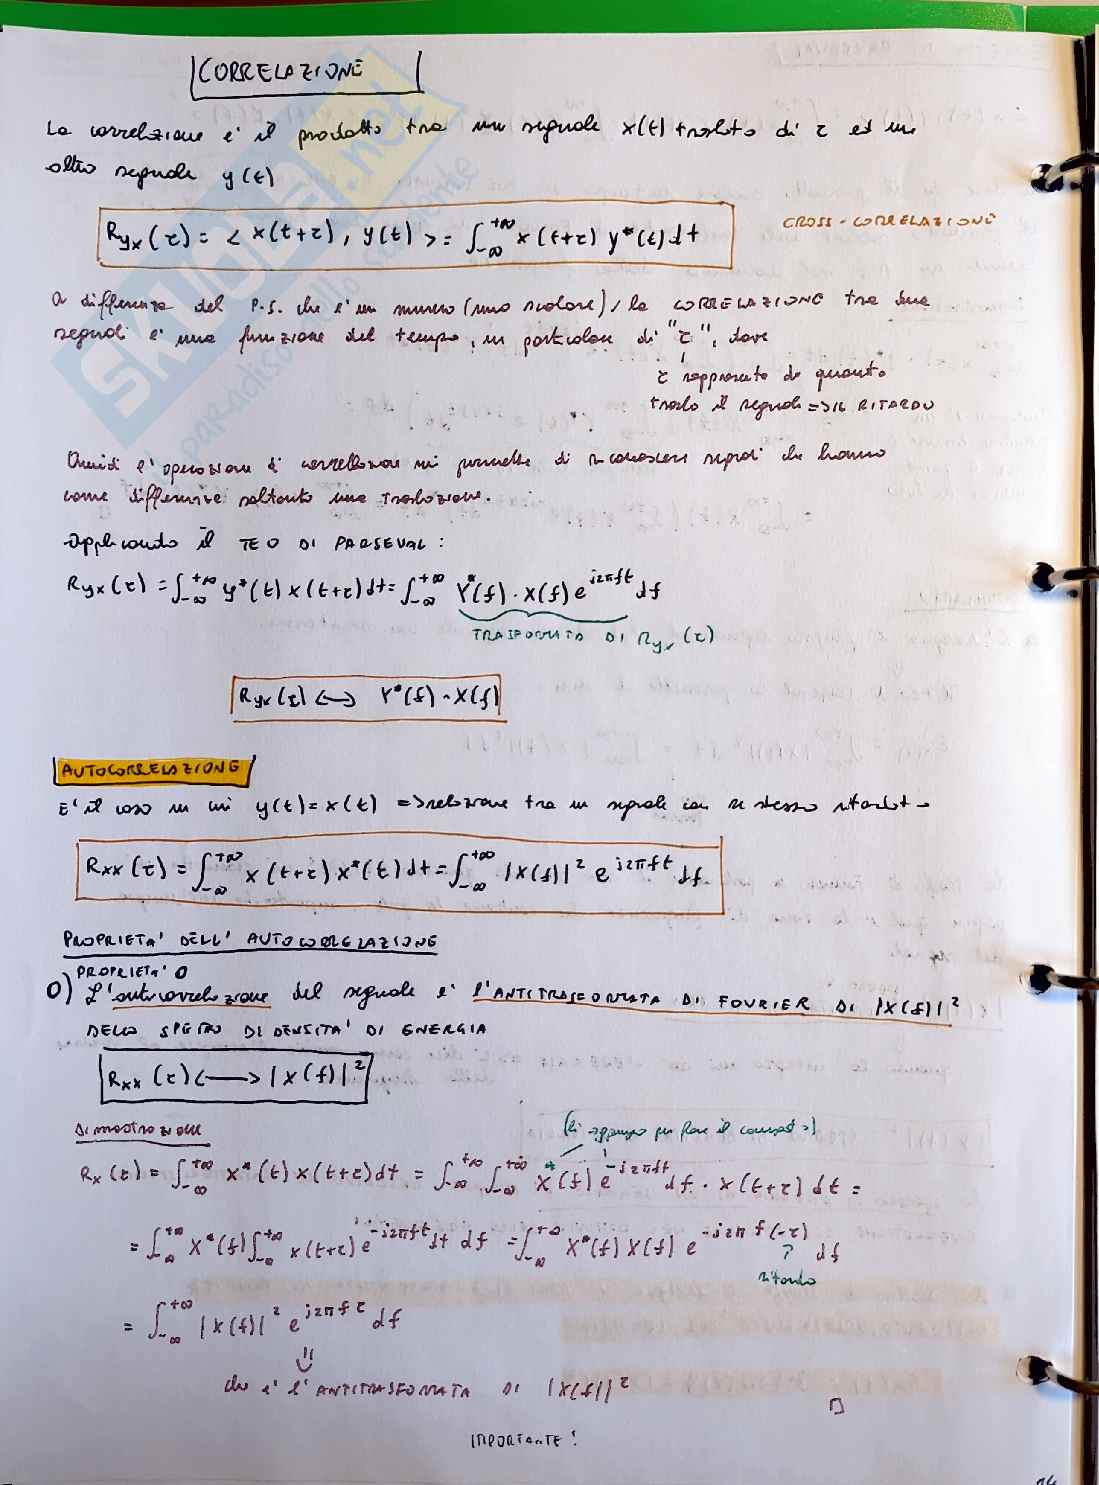 CORRELAZIONE
La correlazione e' il prodotto tra un segnale x(t) traslato di τ ed un
altro segnale y(t)
Ryx(τ) = < x(t+τ), y(t) > = ∫_{-∞}^{+∞} x(t+τ) y*(t) dt
CROSS-CORRELAZIONE
A differenza del P.S. che e' un numero (uno scalare), la CORRELAZIONE tra due
segnali e' una funzione del tempo, in particolare di "τ", dove
τ rappresenta di quanto
traslo il segnale => IL RITARDO
Quindi l'operazione di correllazione mi permette di riconoscere segnali che hanno
come differenza soltanto una traslazione.
Applicando il TEO DI PARSEVAL:
Ryx(τ) = ∫_{-∞}^{+∞} y*(t) x(t+τ) dt = ∫_{-∞}^{+∞} Y*(f) · X(f) e^{j2πft} df
TRASFORMATA DI Ryx(τ)
Ryx(τ) <-> Y*(f) · X(f)
AUTOCORRELAZIONE
E' il caso in cui y(t) = x(t) => relazione tra un segnale con se stesso
Rxx(τ) = ∫_{-∞}^{+∞} x(t+τ) x*(t) dt = ∫_{-∞}^{+∞} |X(f)|² e^{j2πft} df
PROPRIETA' DELL'AUTOCORRELAZIONE
PROPRIETA' 0
0) L'autocorrelazione del segnale e' l'ANTITRASFORMATA DI FOURIER DI |X(f)|²
DELLO SPETTRO DI DENSITA' DI ENERGIA
Rxx(τ) <—> |X(f)|²
Dimostrazione
per fare il
Rx(τ) = ∫_{-∞}^{+∞} x*(t) x(t+τ) dt = ∫_{-∞}^{+∞} ∫_{-∞}^{+∞} X*(f) e^{-j2πft} df · x(t+τ) dt =
= ∫_{-∞}^{+∞} X*(f) ∫_{-∞}^{+∞} x(t+τ) e^{-j2πft} dt df = ∫_{-∞}^{+∞} X*(f) X(f) e^{-j2πf(-τ)} df
ritardo
= ∫_{-∞}^{+∞} |X(f)|² e^{j2πfτ} df
che e' l'ANTITRASFORMATA DI |X(f)|²
IMPORTANTE!
skuola.net
paradiso dello studente